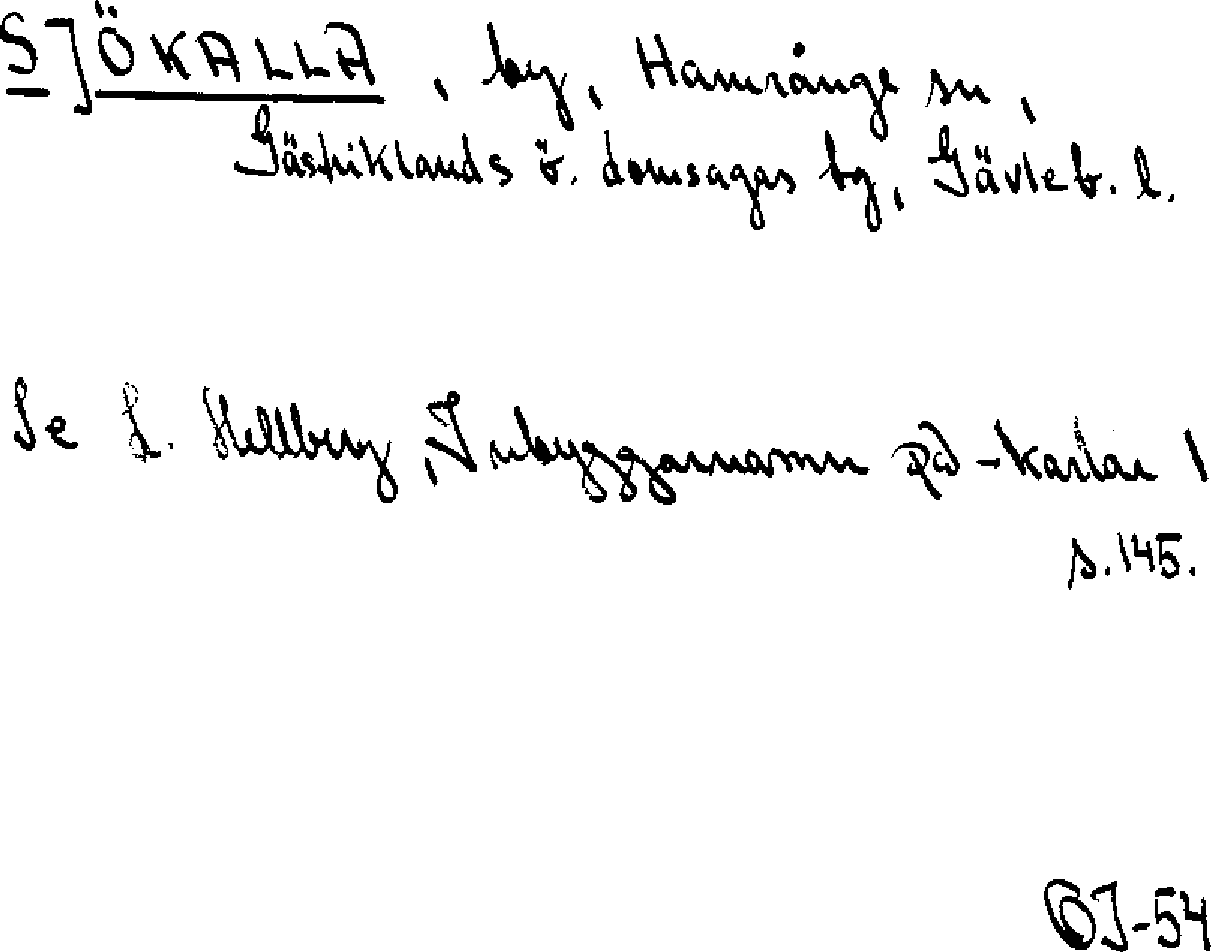 SJÖKALLA, by, Hamrånge sn,
Gästriklands ö. domsagas tg, Gävleb. l.
Se L. Hellberg, Inbyggarnamn på -karlar 1
s. 145.
OJ-54